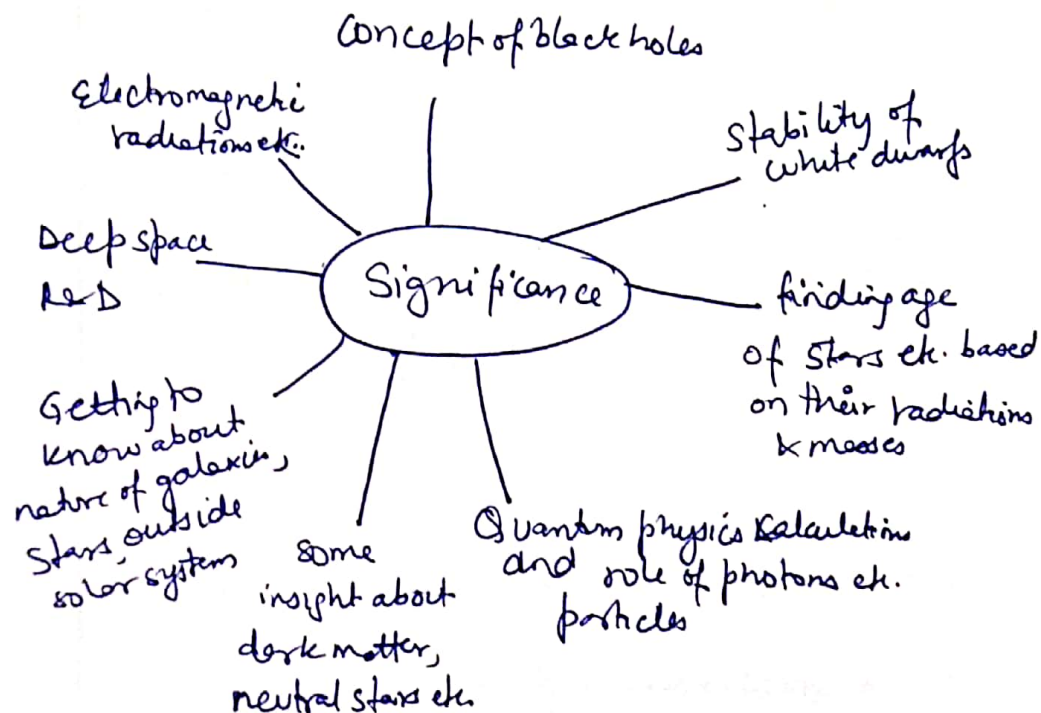 Concept of black holes
Electromagnetic
radiations etc..
Stability of
white dwarfs
Deep space
R&D
Significance
finding age
of stars etc. based
on their radiations
& masses
Getting to
know about
nature of galaxies,
stars, outside
solar system
some
insight about
dark matter,
neutral stars etc.
Quantum physics calculations
and role of photons etc.
particles